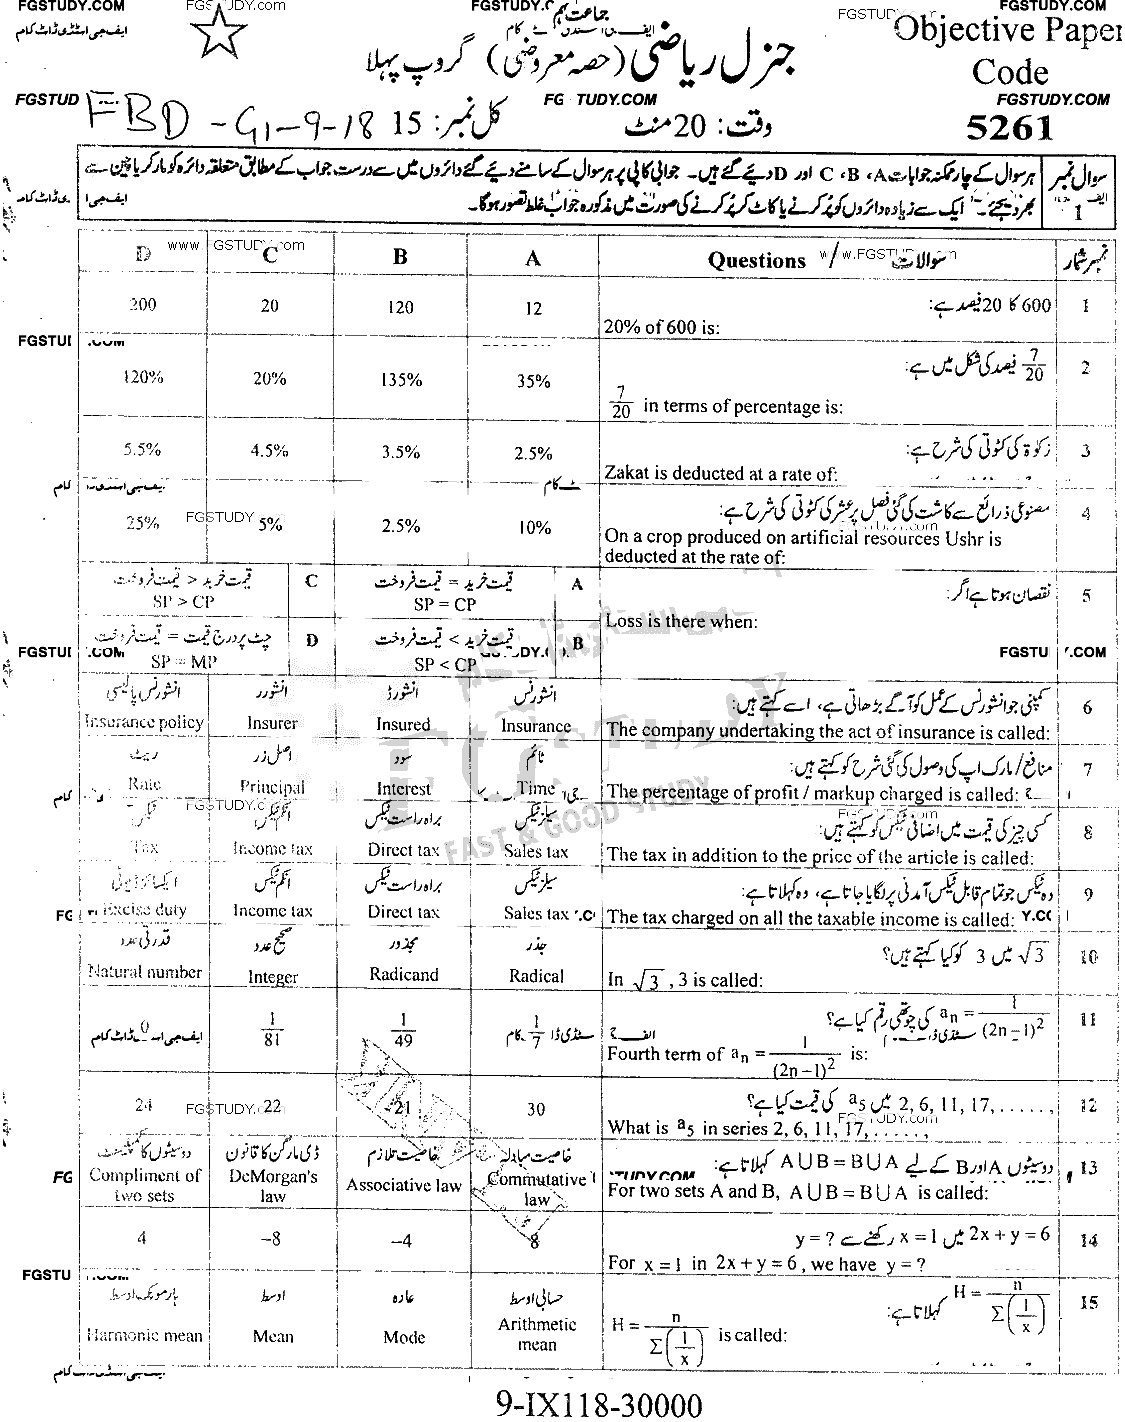 FGSTUDY.COM
ایف جی اسٹڈی ڈاٹ کام
جماعت نہم
Objective Paper
Code
5261
جنرل ریاضی (حصہ معروضی) گروپ پہلا
وقت: 20 منٹ
کل نمبر: 15
FBD - G1-9-18
سوال نمبر 1
ہر سوال کے چار ممکنہ جوابات A، B، C اور D دیے گئے ہیں۔ جوابی کاپی پر ہر سوال کے سامنے دیے گئے دائروں میں سے درست جواب کے مطابق متعلقہ دائرہ کو مارکر یا پین سے
بھر دیجئے۔ ایک سے زیادہ دائروں کو پُر کرنے یا کاٹ کر پُر کرنے کی صورت میں مذکورہ جواب غلط تصور ہوگا۔
نمبر شمار Questions سوالات A B C D
1 600 کا 20 فیصد ہے:
20% of 600 is: 12 120 20 200
2 7/20 فیصد کی شکل میں ہے:
7/20 in terms of percentage is: 35% 135% 20% 120%
3 زکوٰۃ کی کٹوتی کی شرح ہے:
Zakat is deducted at a rate of: 2.5% 3.5% 4.5% 5.5%
4 مصنوعی ذرائع سے کاشت کی گئی فصل پر عشر کی کٹوتی کی شرح ہے:
On a crop produced on artificial resources Ushr is
deducted at the rate of: 10% 2.5% 5% 25%
5 نقصان ہوتا ہے اگر:
Loss is there when:
A قیمت خرید = قیمت فروخت
SP = CP
B قیمت خرید > قیمت فروخت
SP < CP
C قیمت خرید < قیمت فروخت
SP > CP
D چٹ پر درج قیمت = قیمت فروخت
SP = MP
6 کمپنی جو انشورنس کے عمل کو آگے بڑھاتی ہے، اسے کہتے ہیں:
انشورنس انشورڈ انشورر انشورنس پالیسی
The company undertaking the act of insurance is called: Insurance Insured Insurer Insurance policy
7 منافع/مارک اپ کی وصول کی گئی شرح کو کہتے ہیں:
ٹائم سود اصل زر ریٹ
The percentage of profit / markup charged is called: Time Interest Principal Rate
8 کسی چیز کی قیمت میں اضافی ٹیکس کو کہتے ہیں:
سیلز ٹیکس براہ راست ٹیکس انکم ٹیکس ٹیکس
The tax in addition to the price of the article is called: Sales tax Direct tax Income tax Tax
9 وہ ٹیکس جو تمام قابل ٹیکس آمدنی پر لگایا جاتا ہے، وہ کہلاتا ہے:
سیلز ٹیکس براہ راست ٹیکس انکم ٹیکس ایکسائز ڈیوٹی
The tax charged on all the taxable income is called: Sales tax Direct tax Income tax Excise duty
10 √3 میں 3 کو کیا کہتے ہیں؟
جذر مجذور صحیح عدد قدرتی عدد
In √3 , 3 is called: Radical Radicand Integer Natural number
11 an = 1/(2n−1)² کی چوتھی رقم کیا ہے؟
Fourth term of an = 1/(2n−1)² is: 1/7 1/49 1/81 0
12 2, 6, 11, 17, ...... میں a5 کی قیمت کیا ہے؟
What is a5 in series 2, 6, 11, 17, ......, 30 21 22 24
13 دو سیٹوں A اور B کے لیے A∪B = B∪A کہلاتا ہے:
خاصیت مبادلہ خاصیت تلازم ڈی مارگن کا قانون دو سیٹوں کا کمپلیمنٹ
For two sets A and B, A∪B = B∪A is called: Commutative law Associative law DeMorgan's law Compliment of two sets
14 2x + y = 6 میں x = 1 رکھنے سے y = ?
For x = 1 in 2x + y = 6 , we have y = ? 8 −4 −8 4
15 H = n/Σ(1/x) کہلاتا ہے:
حسابی اوسط عادہ اوسط ہارمونک اوسط
H = n/Σ(1/x) is called: Arithmetic mean Mode Mean Harmonic mean
FGSTUDY
FAST & GOOD STUDY
9-IX118-30000